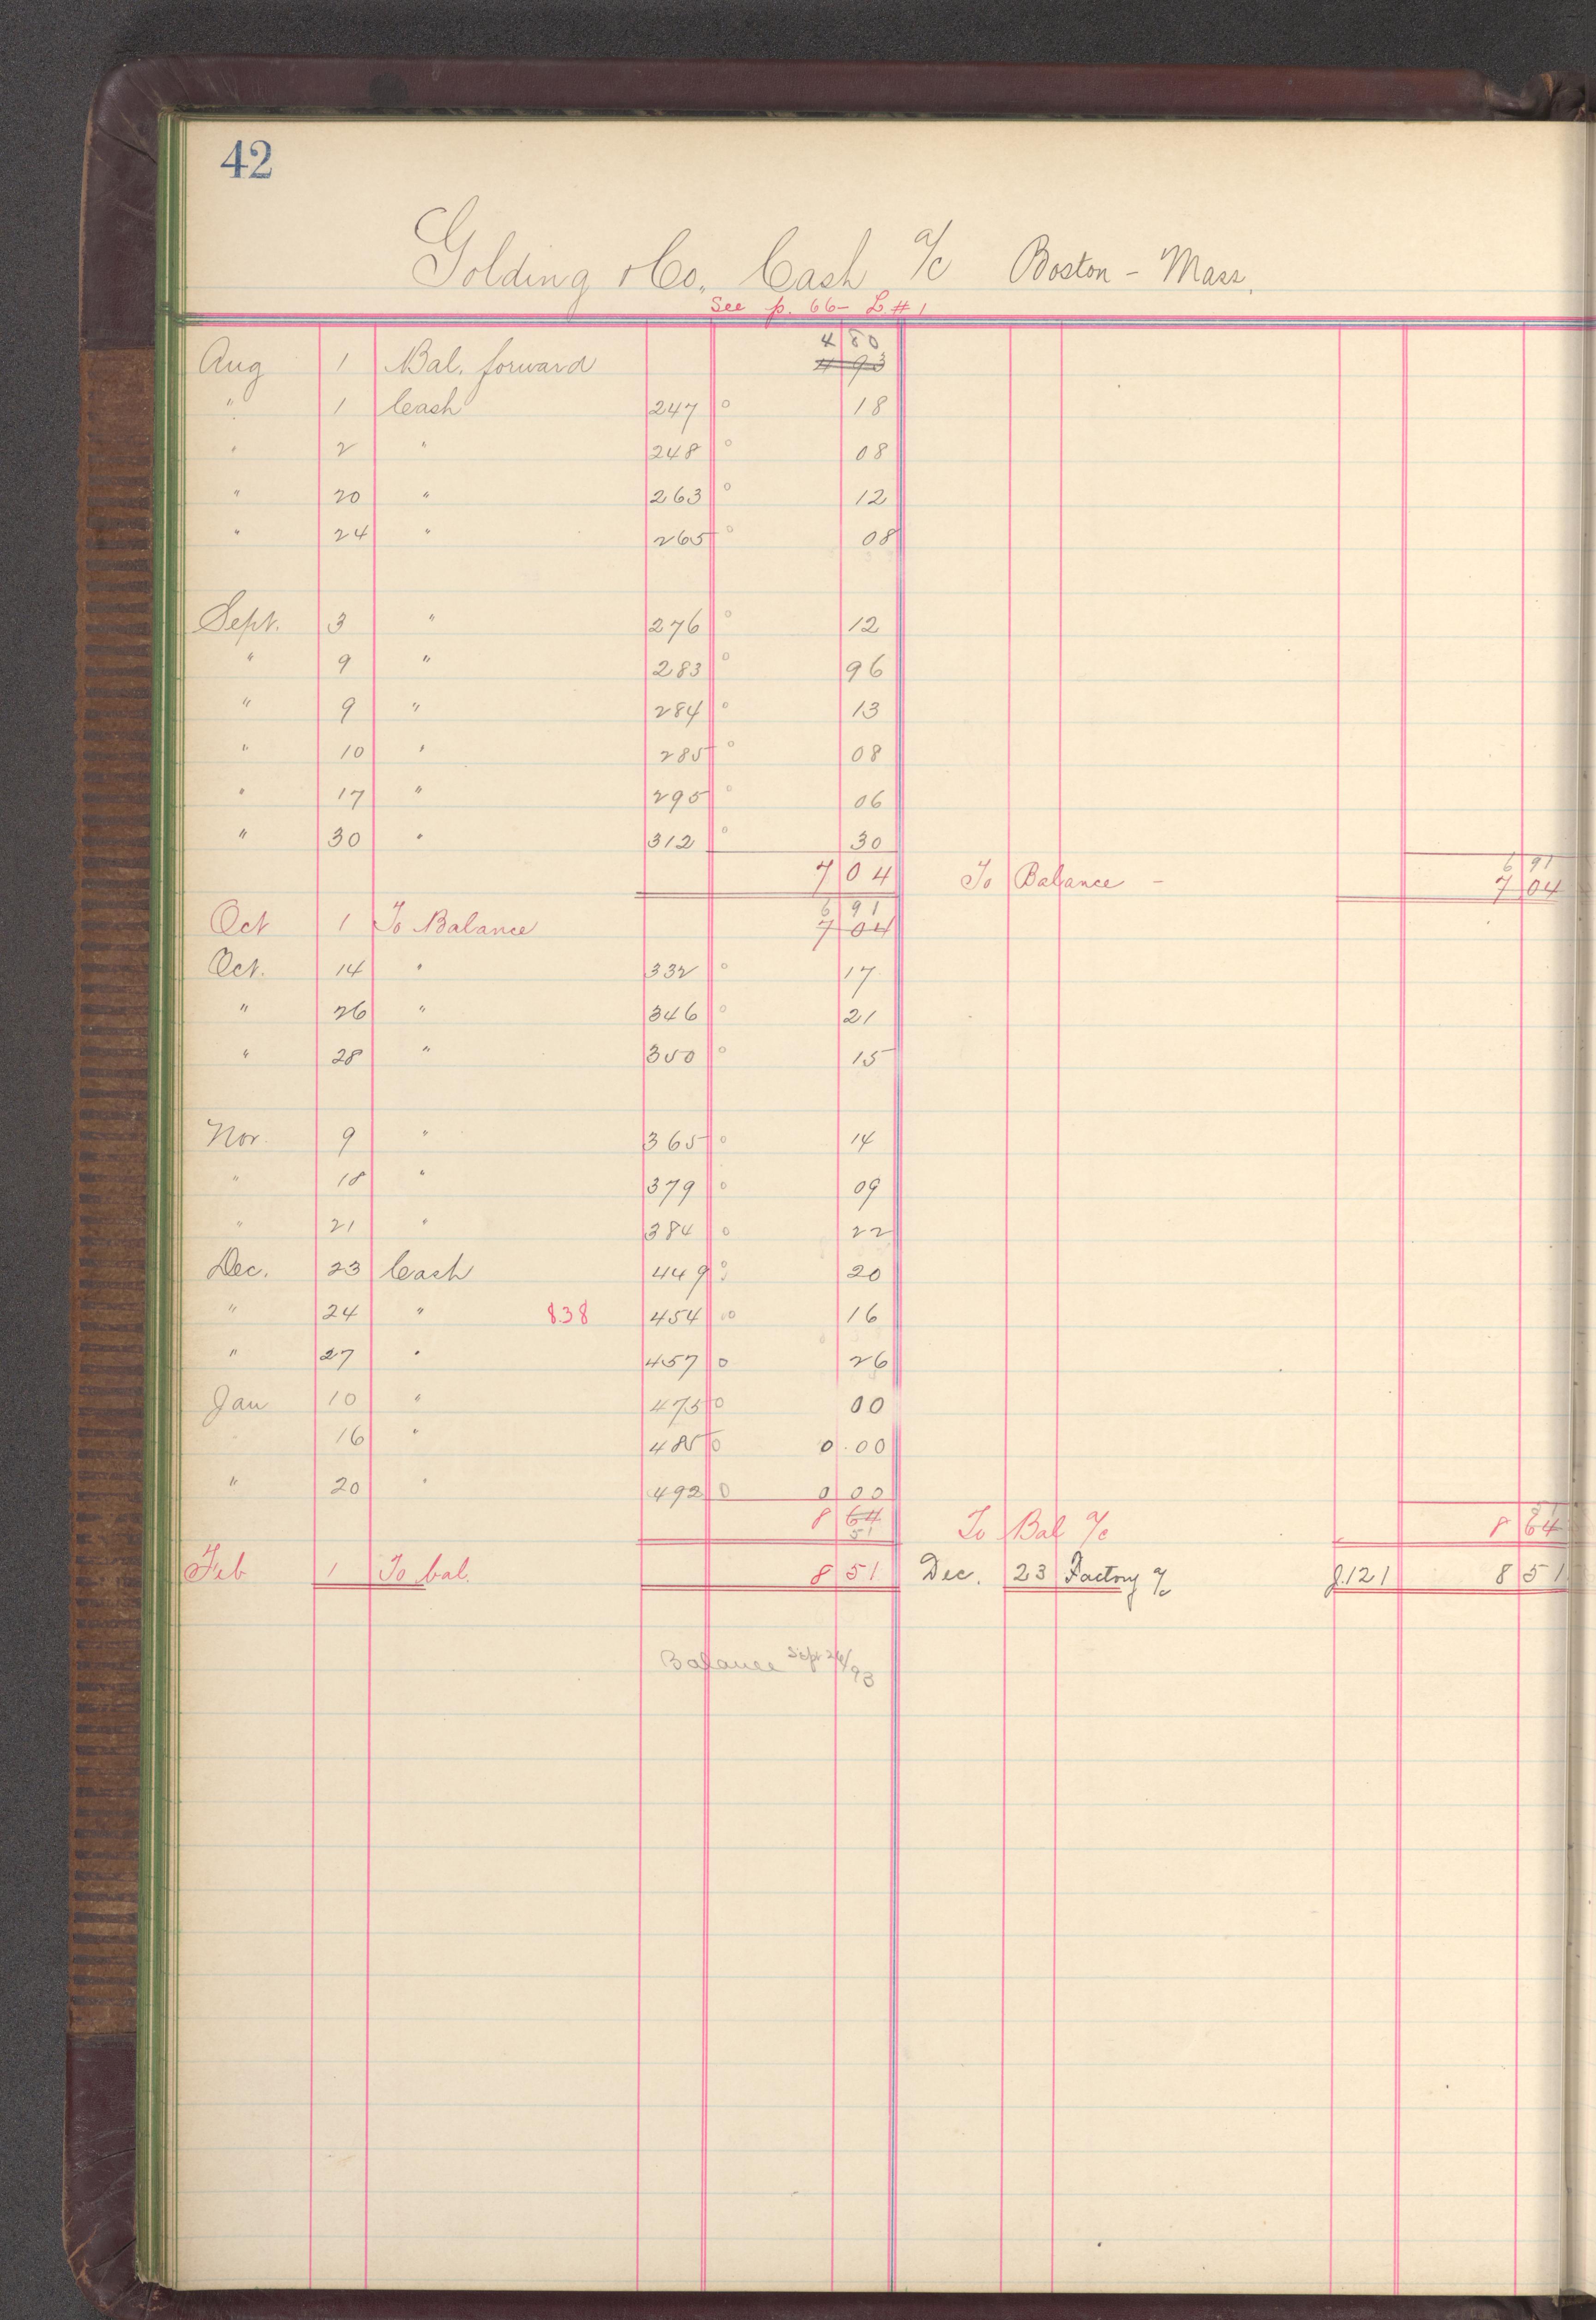 42
Golding & Co. Cash a/c Boston - Mass.
See p. 66 - L # 1
4 80
Aug 1 Bal. forward 4 93
" 1 Cash 247 0 18
" 2 " 248 0 08
" 20 " 263 0 12
" 24 " 265 0 08
Sept. 3 " 276 0 12
" 9 " 283 0 96
" 9 " 284 0 13
" 10 " 285 0 08
" 17 " 295 0 06
" 30 " 312 0 30
6 91
7 04 To Balance - 7 04
6 91
Oct 1 To Balance 7 04
Oct. 14 " 332 0 17
" 26 " 346 0 21
" 28 " 350 0 15
Nov. 9 " 365 0 14
" 18 " 379 0 09
" 21 " 384 0 22
Dec. 23 Cash 449 0 20
" 24 " 838 454 0 16
" 27 " 457 0 26
Jan 10 " 475 0 00
16 " 485 0 0.00
" 20 " 492 0 0 00
8 64 To Bal a/c 8 64
51
Feb 1 To bal. 8 51 Dec. 23 Factory a/c J.121 8 51
Balance Sept 26/93